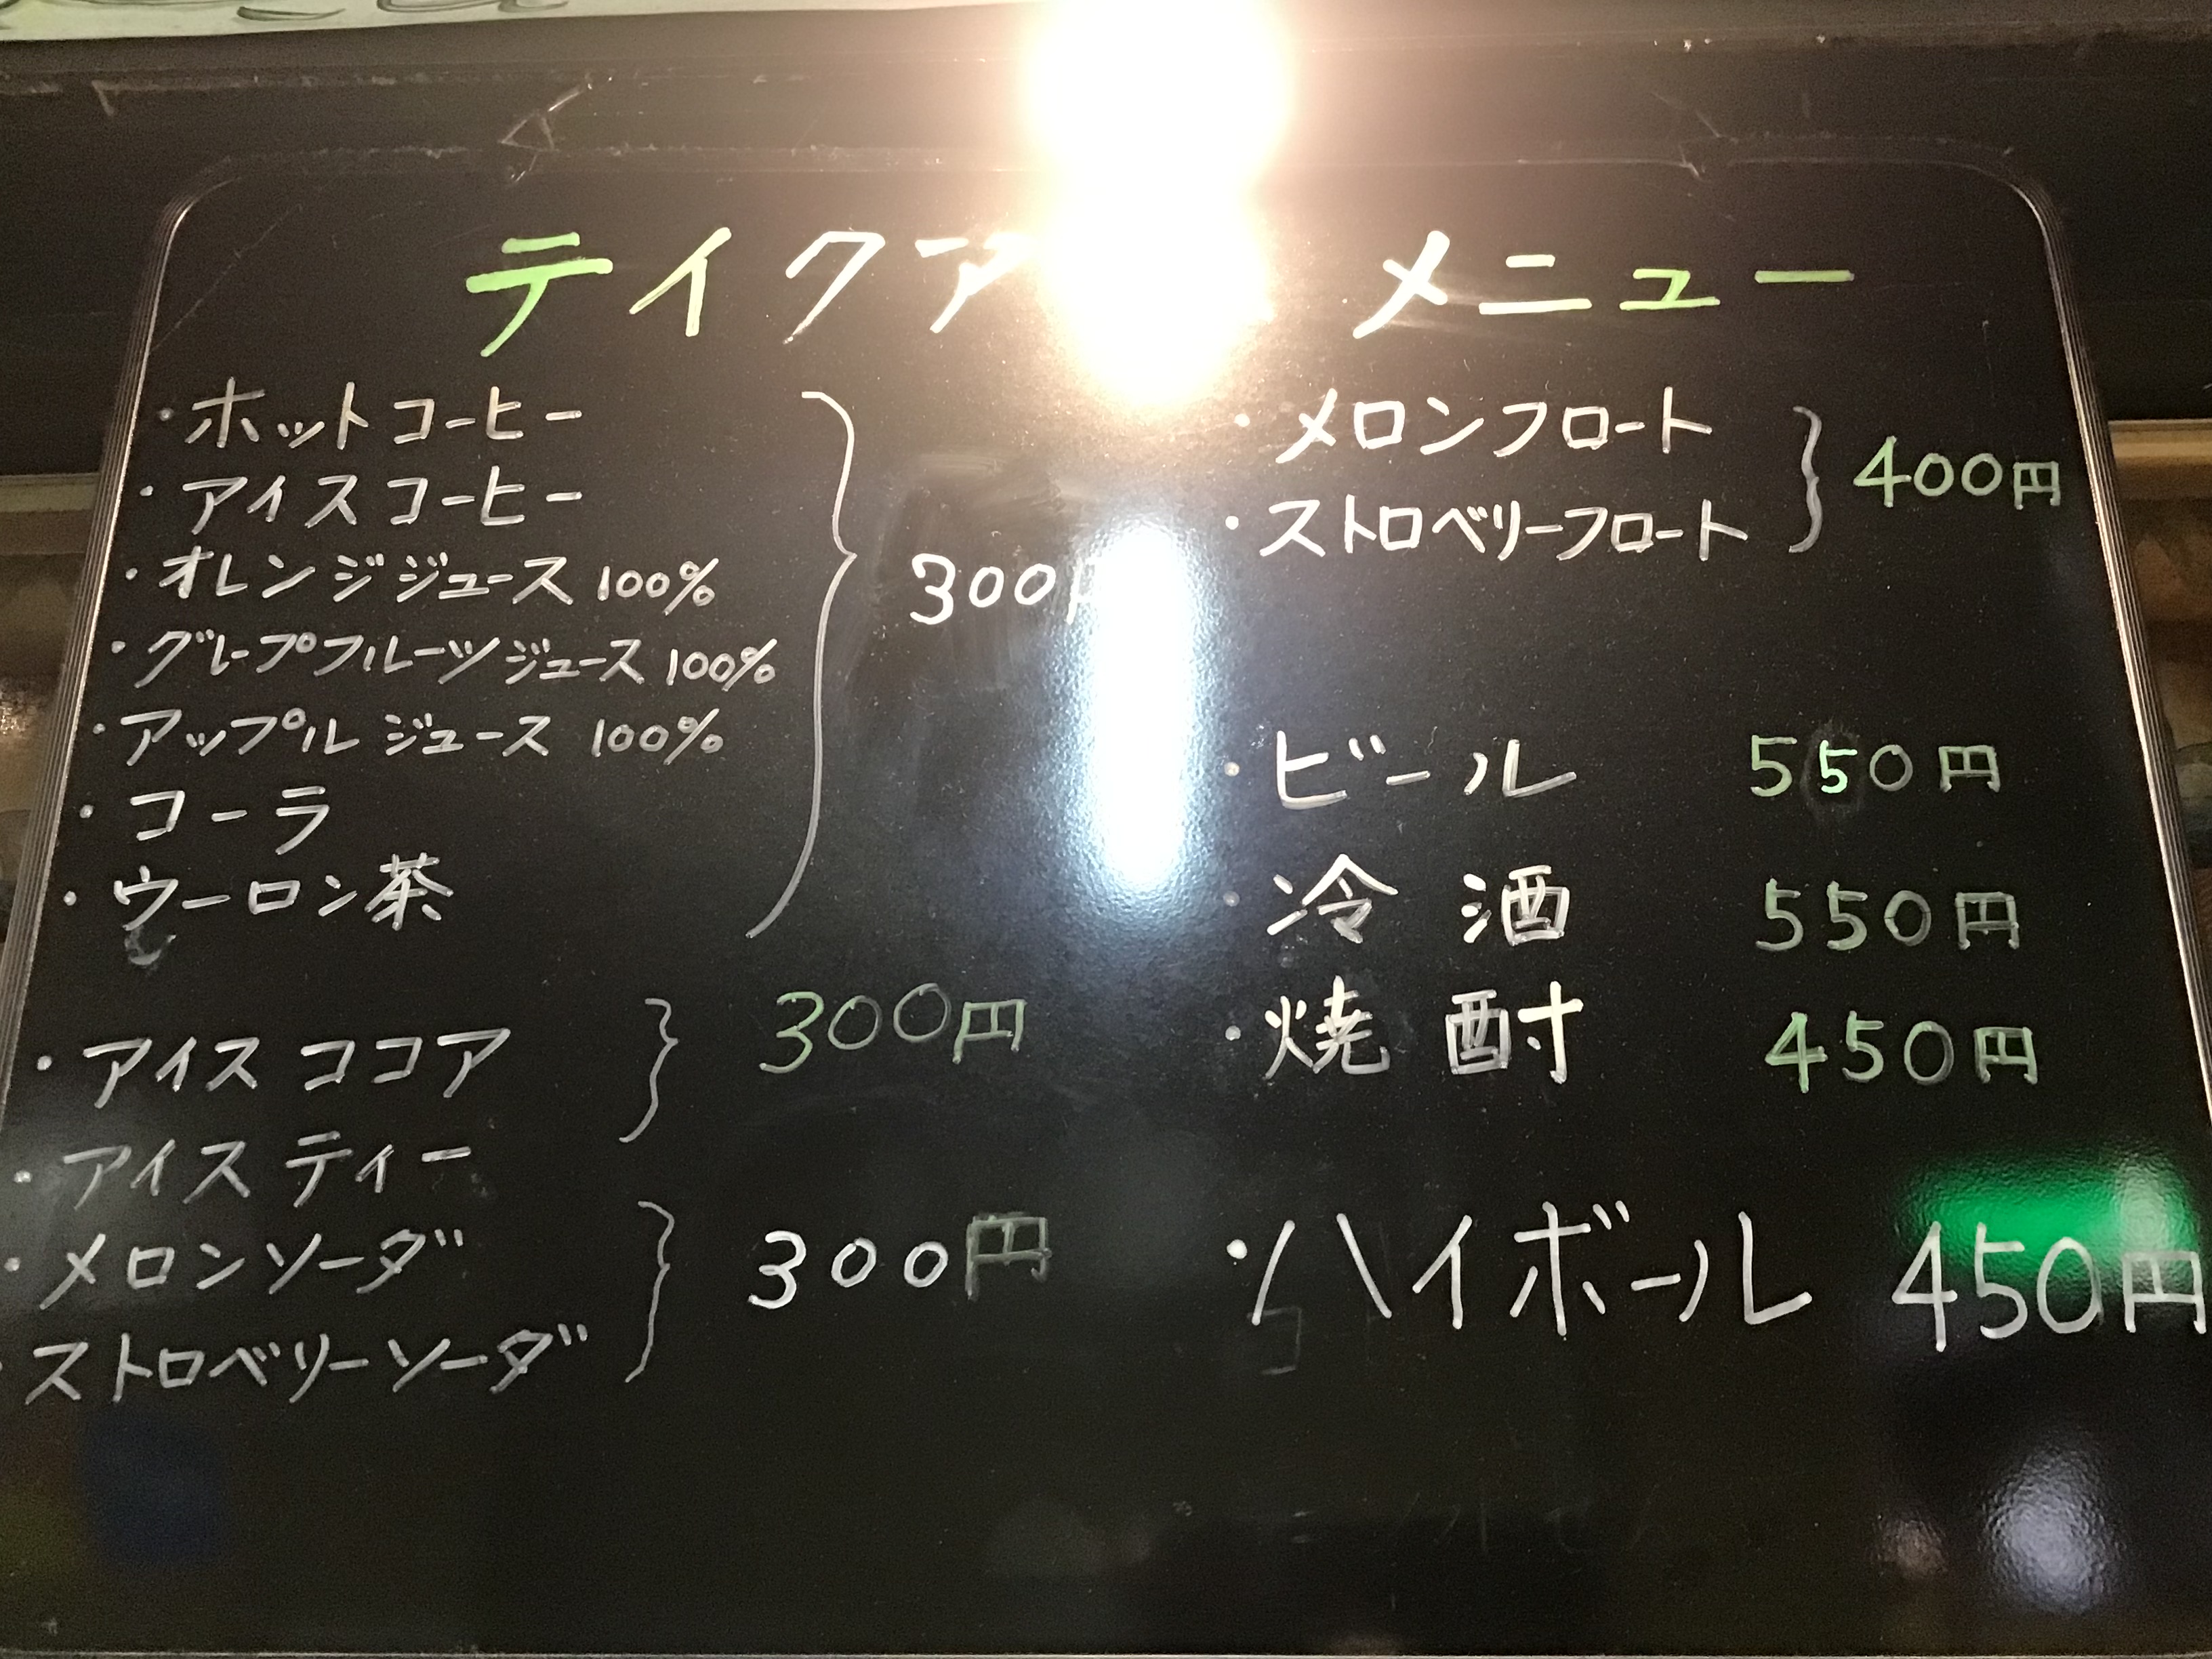 テイクア メニュー
・ホットコーヒー
・アイスコーヒー
・オレンジジュース 100%
・グレープフルーツジュース 100%
・アップルジュース 100%
・コーラ
・ウーロン茶
300円
・アイスココア
300円
・アイスティー
・メロンソーダ
・ストロベリーソーダ
300円
・メロンフロート
・ストロベリーフロート
400円
・ビール 550円
・冷酒 550円
・焼酎 450円
・ハイボール 450円